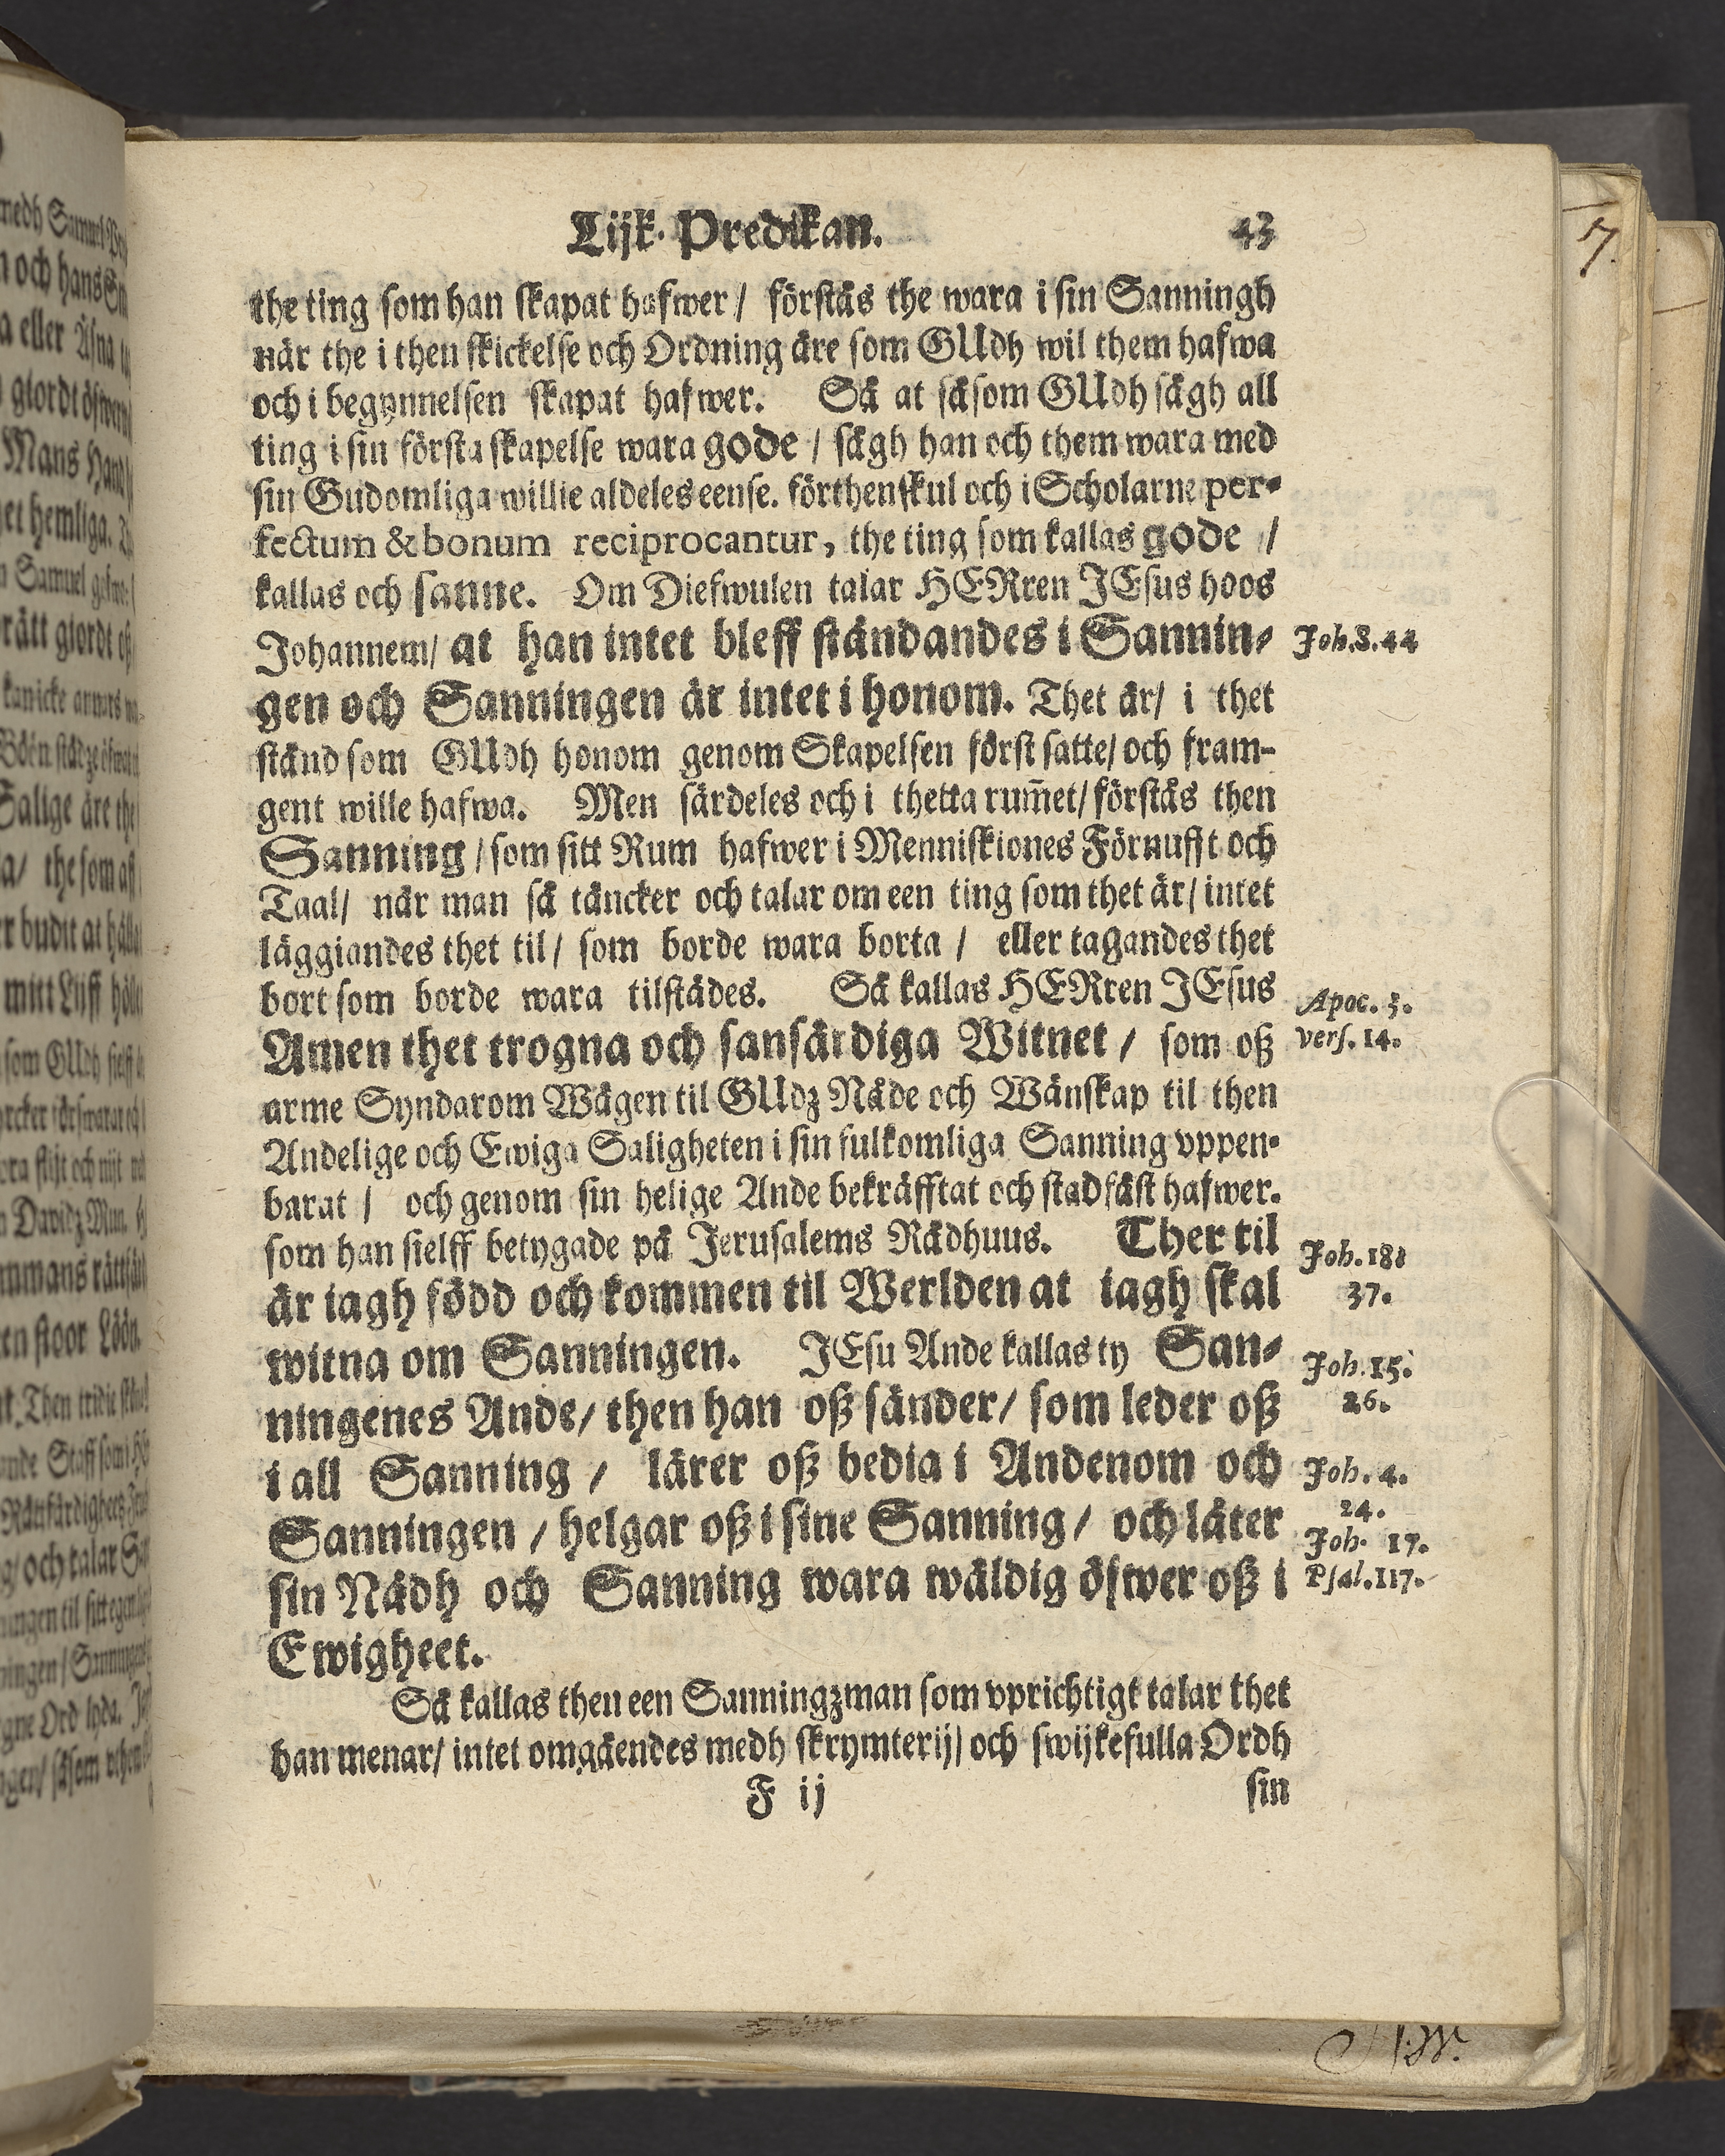 Lijk. Predikan. 43
the ting som han skapat hafwer / förstås the wara i sin Sanningh
när the i then skickelse och Ordning äre som GUdh wil them hafwa
och i begynnelsen skapat hafwer. Så at såsom GUdh sågh all
ting i sin första skapelse wara gode / sågh han och them wara med
sin Gudomliga willie aldeles eense. förthenskul och i Scholarne per-
fectum & bonum reciprocantur, the ting som kallas gode /
kallas och sanne. Om Diefwulen talar HERren JEsus hoos
Johannem/ at han intet bleff ståndandes i Sannin- Joh.8.44
gen och Sanningen är intet i honom. Thet är/ i thet
stånd som GUdh honom genom Skapelsen först satte/ och fram-
gent wille hafwa. Men särdeles och i thetta rum̄et/ förstås then
Sanning / som sitt Rum hafwer i Menniskiones Förnufft och
Taal/ när man så täncker och talar om een ting som thet är/ intet
läggiandes thet til/ som borde wara borta / eller tagandes thet
bort som borde wara tilstädes. Så kallas HERren JEsus Apoc. 3.
Amen thet trogna och sanfärdiga Witnet / som oß vers. 14.
arme Syndarom Wägen til GUdz Nåde och Wänskap til then
Andelige och Ewiga Saligheten i sin fulkomliga Sanning vppen-
barat / och genom sin helige Ande bekräfftat och stadfäst hafwer.
som han sielff betygade på Jerusalems Rådhuus. Ther til Joh. 18:
är iagh född och kommen til Werlden at iagh skal 37.
witna om Sanningen. JEsu Ande kallas ty San- Joh. 15.
ningenes Ande/ then han oß sänder/ som leder oß 26.
i all Sanning / lärer oß bedia i Andenom och Joh. 4.
24.
Sanningen / helgar oß i sine Sanning / och låter Joh. 17.
sin Nådh och Sanning wara wäldig öfwer oß i Psal.117.
Ewigheet.
Så kallas then een Sanningzman som vprichtigt talar thet
han menar/ intet omgåendes medh skrymterij/ och swijkefulla Ordh
F ij sin
7.